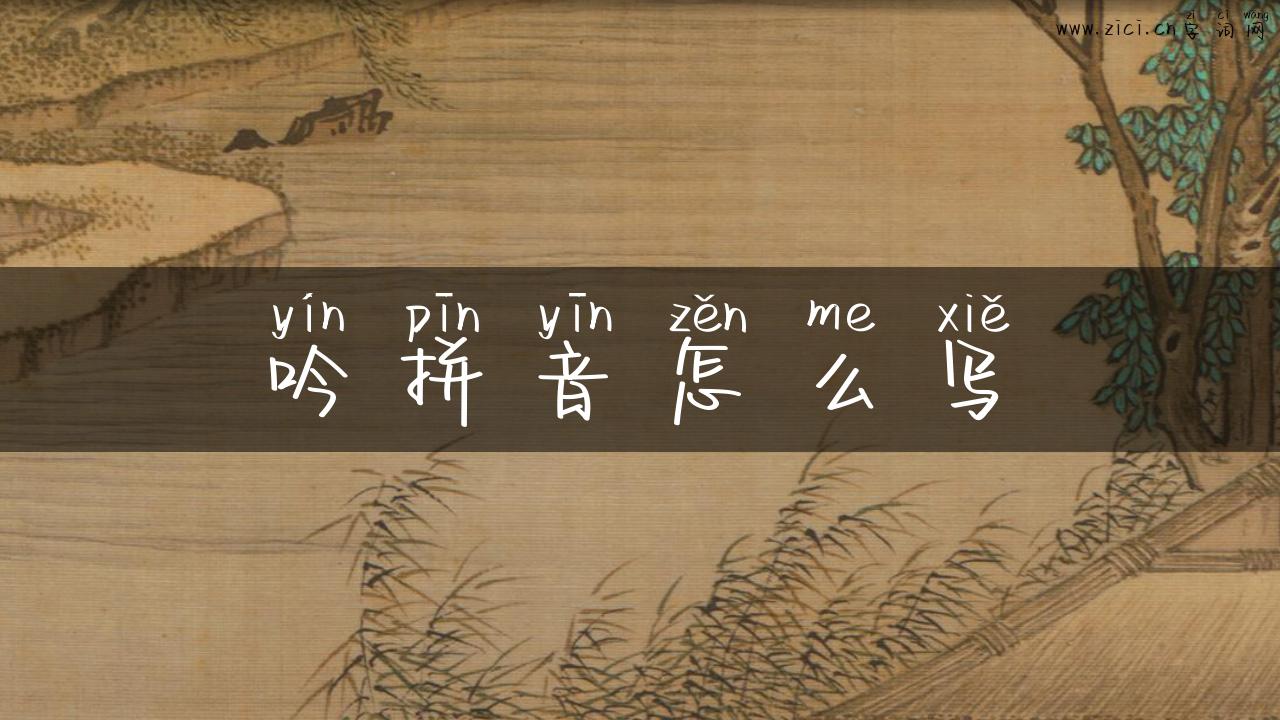 zì cí wǎng
www.zici.cn字词网
yín pīn yīn zěn me xiě
吟拼音怎么写